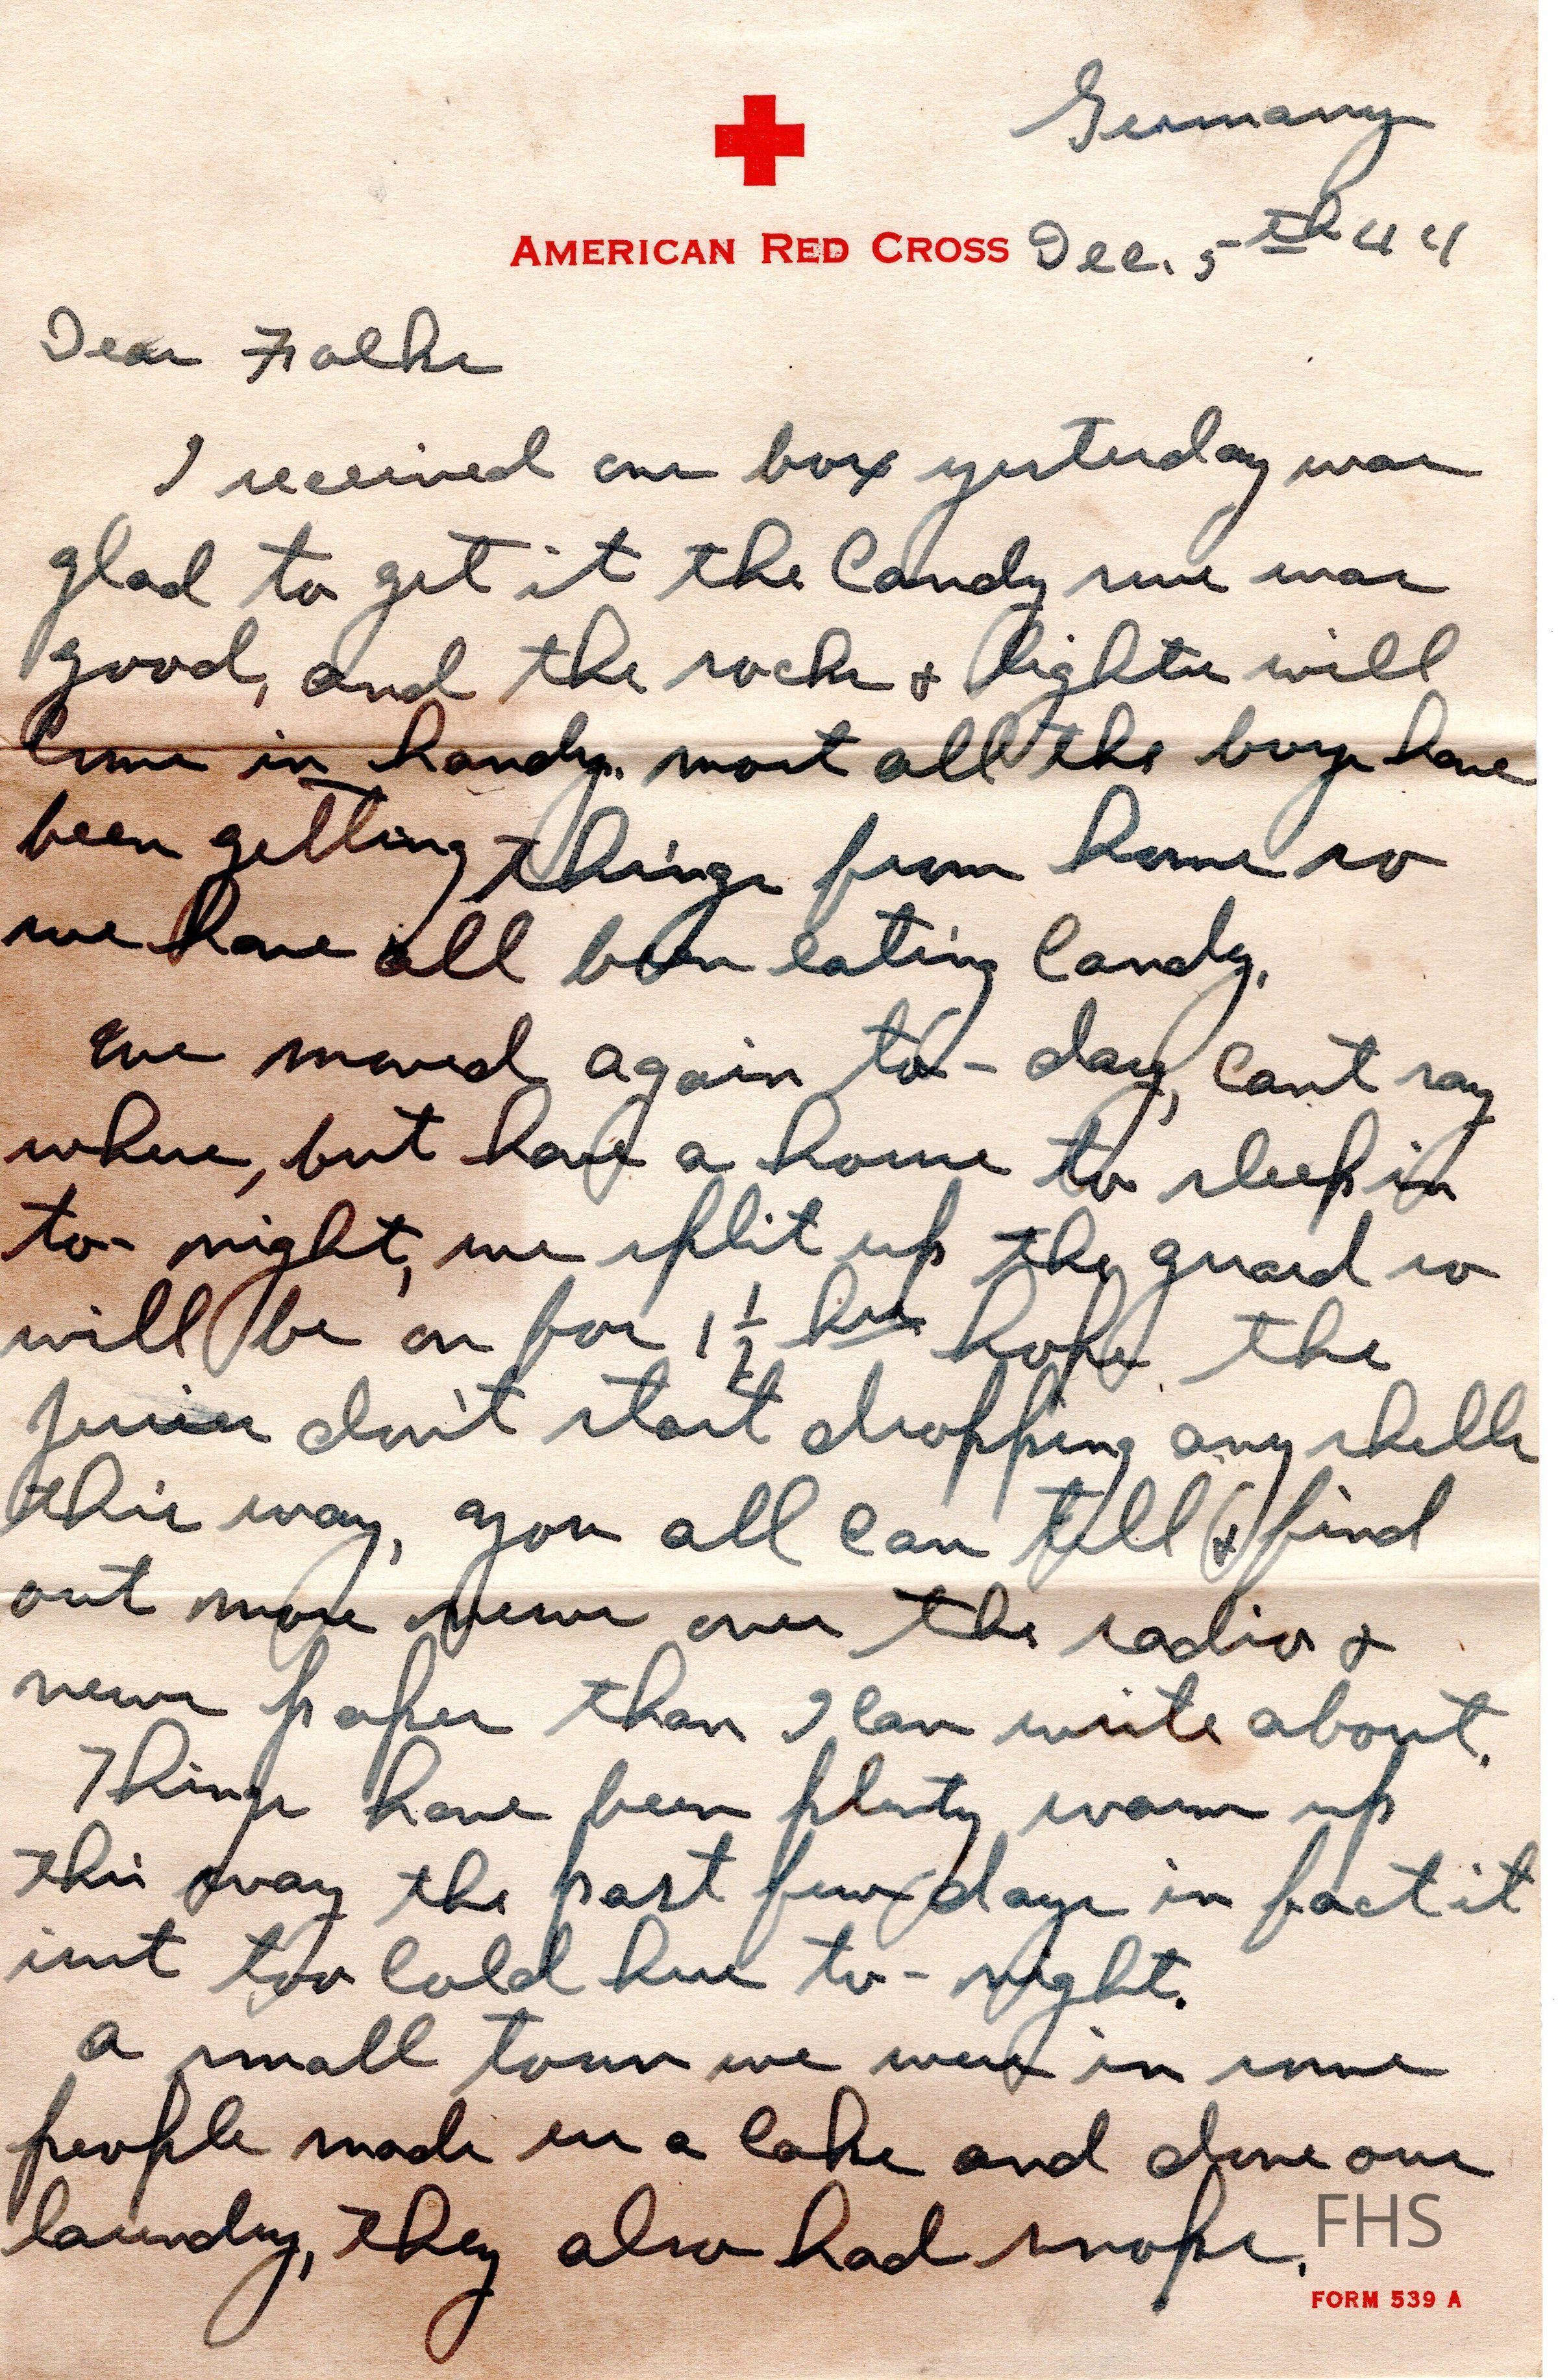 Germany
AMERICAN RED CROSS Dec. 5th 44
Dear Folks
I received one box yesterday was
glad to get it the candy sure was
good, and the socks & lighter will
come in handy. most all the boys have
been getting things from home so
we have all been eating candy.
We moved again to-day, can't say
where, but have a house to sleep in
to-night, we split up the guard so
will be on for 1 1/2 hrs hope the
jerries don't start dropping any shells
this way, you all can tell & find
out more news over the radio &
news paper than I can write about.
Things have been plenty warm up
this way the past few days in fact it
isnt too cold here to-night.
a small town we were in some
people made us a cake and done our
laundry, they also had snops.
FHS
FORM 539 A